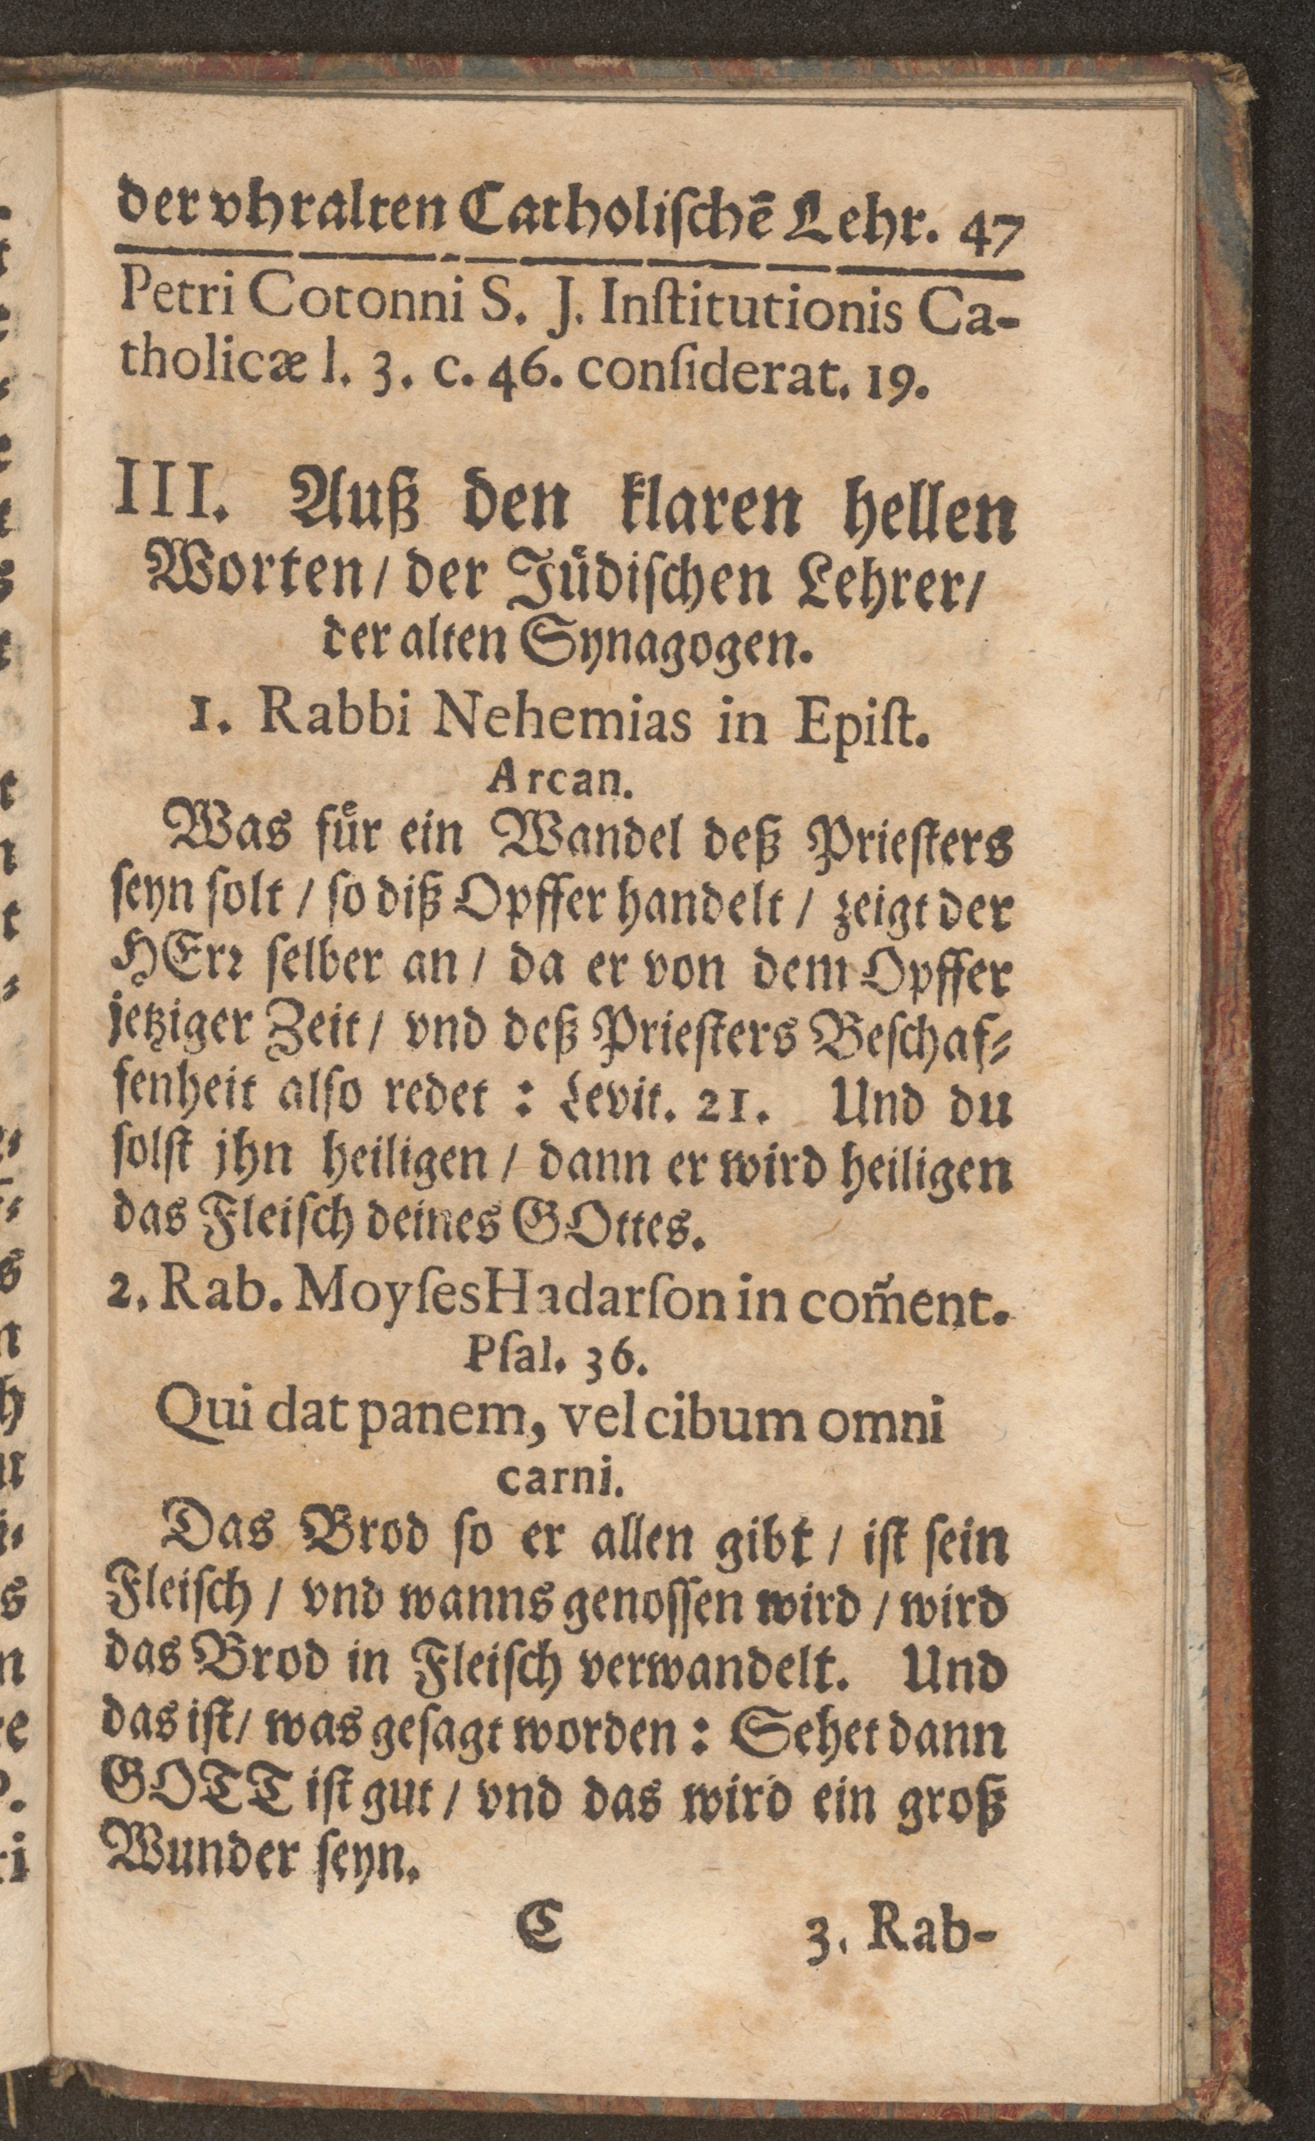 der vhralten Catholischē Lehr. 47
Petri Cotonni S. J. Inſtitutionis Ca-
tholicæ l. 3. c. 46. conſiderat. 19.
III. Auß den klaren hellen
Worten / der Jüdiſchen Lehrer /
der alten Synagogen.
1. Rabbi Nehemias in Epiſt.
Arcan.
Was für ein Wandel deß Prieſters
ſeyn ſolt / ſo diß Opffer handelt / zeigt der
HErꝛ ſelber an / da er von dem Opffer
jetziger Zeit / vnd deß Prieſters Beſchaf⸗
fenheit alſo redet : Levit. 21. Und du
ſolſt jhn heiligen / dann er wird heiligen
das Fleiſch deines GOttes.
2. Rab. Moyſes Hadarſon in com̃ent.
Pſal. 36.
Qui dat panem, vel cibum omni
carni.
Das Brod ſo er allen gibt / iſt ſein
Fleiſch / vnd wanns genoſſen wird / wird
das Brod in Fleiſch verwandelt. Und
das iſt / was geſagt worden : Sehet dann
GOTT iſt gut / vnd das wird ein groß
Wunder ſeyn.
C 3. Rab-